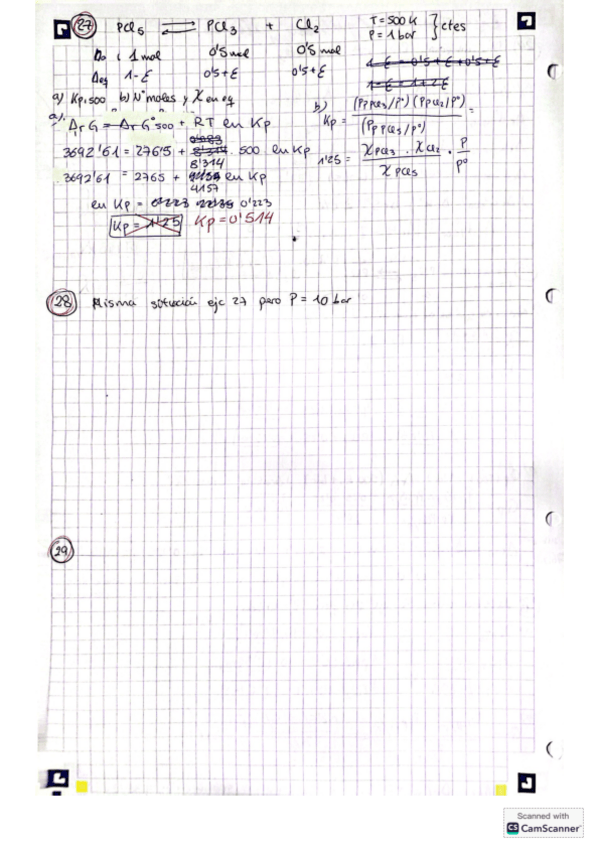 27 PCl5 ⇌ PCl3 + Cl2 T = 500 K P = 1 bar } ctes
n0 : 1 mol 0'5 mol 0'5 mol
neq 1-ξ 0'5+ξ 0'5+ξ
1-ξ = 0'5+ξ+0'5+ξ
1-ξ = 1+2ξ
a) Kp,500 b) Nº moles y χ en eq
a) ΔrG = ΔrG°500 + RT en Kp
3692'61 = 2765 + 8'314 . 500 en Kp
3692'61 = 2765 + 4157 en Kp
en Kp = 0'223
Kp = 1'25 Kp = 0'514
b) Kp = (P PCl3/P°) (P Cl2/P°) / (P PCl5/P°) =
1'25 = χPCl3 . χCl2 / χPCl5 · P/P°
28 Misma solución ejc 27 pero P = 10 bar
29
Scanned with
CS CamScanner